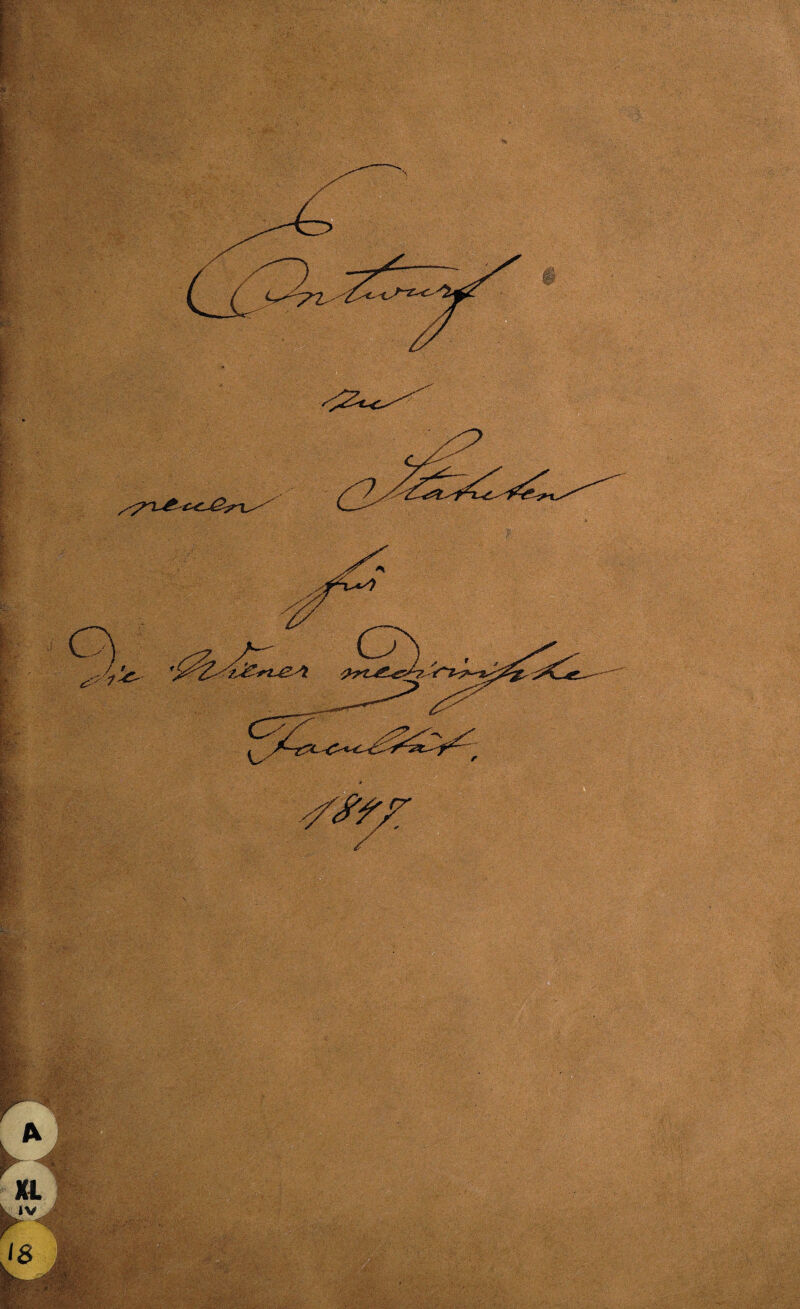 Entwurf
zu
neuen Statuten
für
Die Wiener medicinische
Facultät.
1847.
A
XL
IV
18